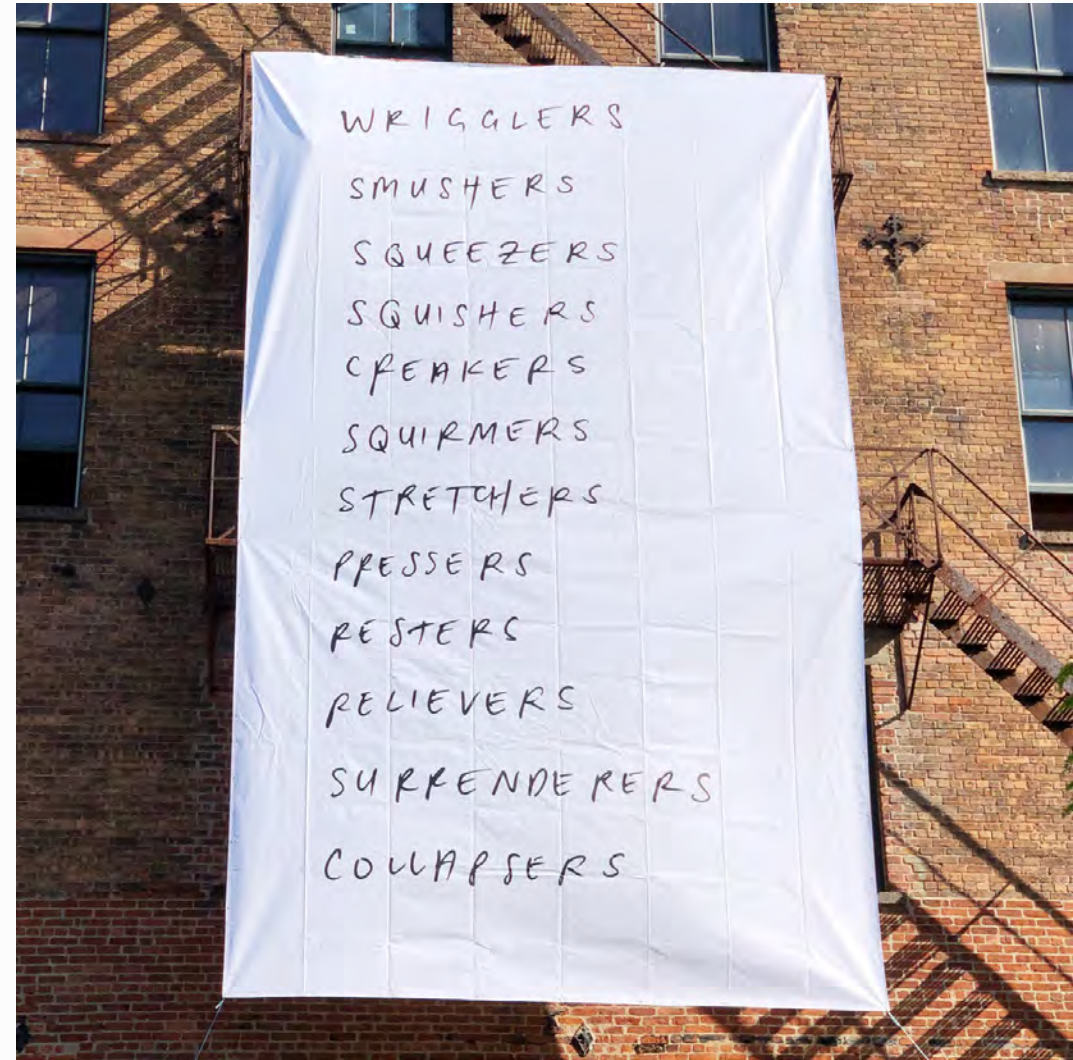 WRIGGLERS
SMUSHERS
SQUEEZERS
SQUISHERS
CREAKERS
SQUIRMERS
STRETCHERS
PRESSERS
RESTERS
RELIEVERS
SURRENDERERS
COLLAPSERS